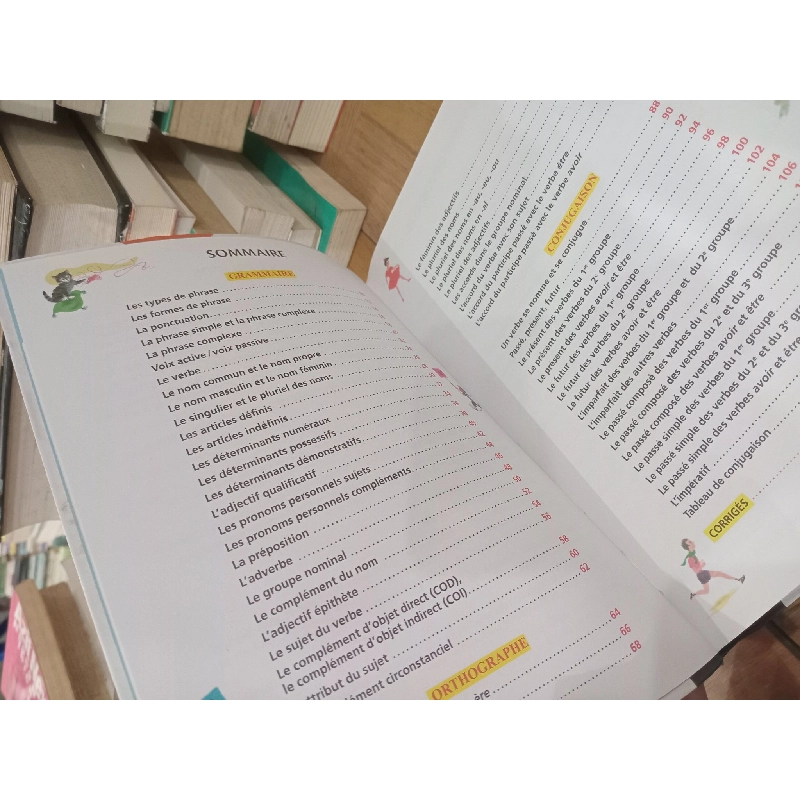 SOMMAIRE
GRAMMAIRE
Les types de phrase
Les formes de phrase
La ponctuation
La phrase simple et la phrase complexe
La phrase complexe
Voix active / voix passive
Le verbe
Le nom commun et le nom propre
Le nom masculin et le nom féminin
Le singulier et le pluriel des noms
Les articles définis
Les articles indéfinis
Les déterminants numéraux
Les déterminants possessifs
Les déterminants démonstratifs
L'adjectif qualificatif
Les pronoms personnels sujets
Les pronoms personnels compléments
La préposition
L'adverbe
Le groupe nominal
Le complément du nom
L'adjectif épithète
Le sujet du verbe
Le complément d'objet direct (COD),
le complément d'objet indirect (COI)
ttribut du sujet
lément circonstanciel
48
50
52
54
56
58
60
62
ORTHOGRAPHE
64
66
68
Le féminin des adjectifs
Le pluriel des noms
Le pluriel des noms en -au, -eau, -eu
Le pluriel des noms en -al
Le pluriel des adjectifs
Les accords dans le groupe nominal
L'accord du verbe avec son sujet
L'accord du participe passé avec le verbe être
L'accord du participe passé avec le verbe avoir
88
90
92
94
96
98
100
102
104
106
CONJUGAISON
Un verbe se nomme et se conjugue
Passé, présent, futur
Le présent des verbes du 1er groupe
Le présent des verbes du 2e groupe
Le présent des verbes avoir et être
Le futur des verbes du 1er groupe
Le futur des verbes du 2e groupe
Le futur des verbes avoir et être
L'imparfait des verbes du 1er groupe et du 2e groupe
L'imparfait des autres verbes
Le passé composé des verbes du 1er groupe
Le passé composé des verbes du 2e et du 3e groupe
Le passé composé des verbes avoir et être
Le passé simple des verbes du 1er groupe
Le passé simple des verbes du 2e et du 3e
Le passé simple des verbes avoir et être
L'impératif
Tableau de conjugaison
CORRIGÉS